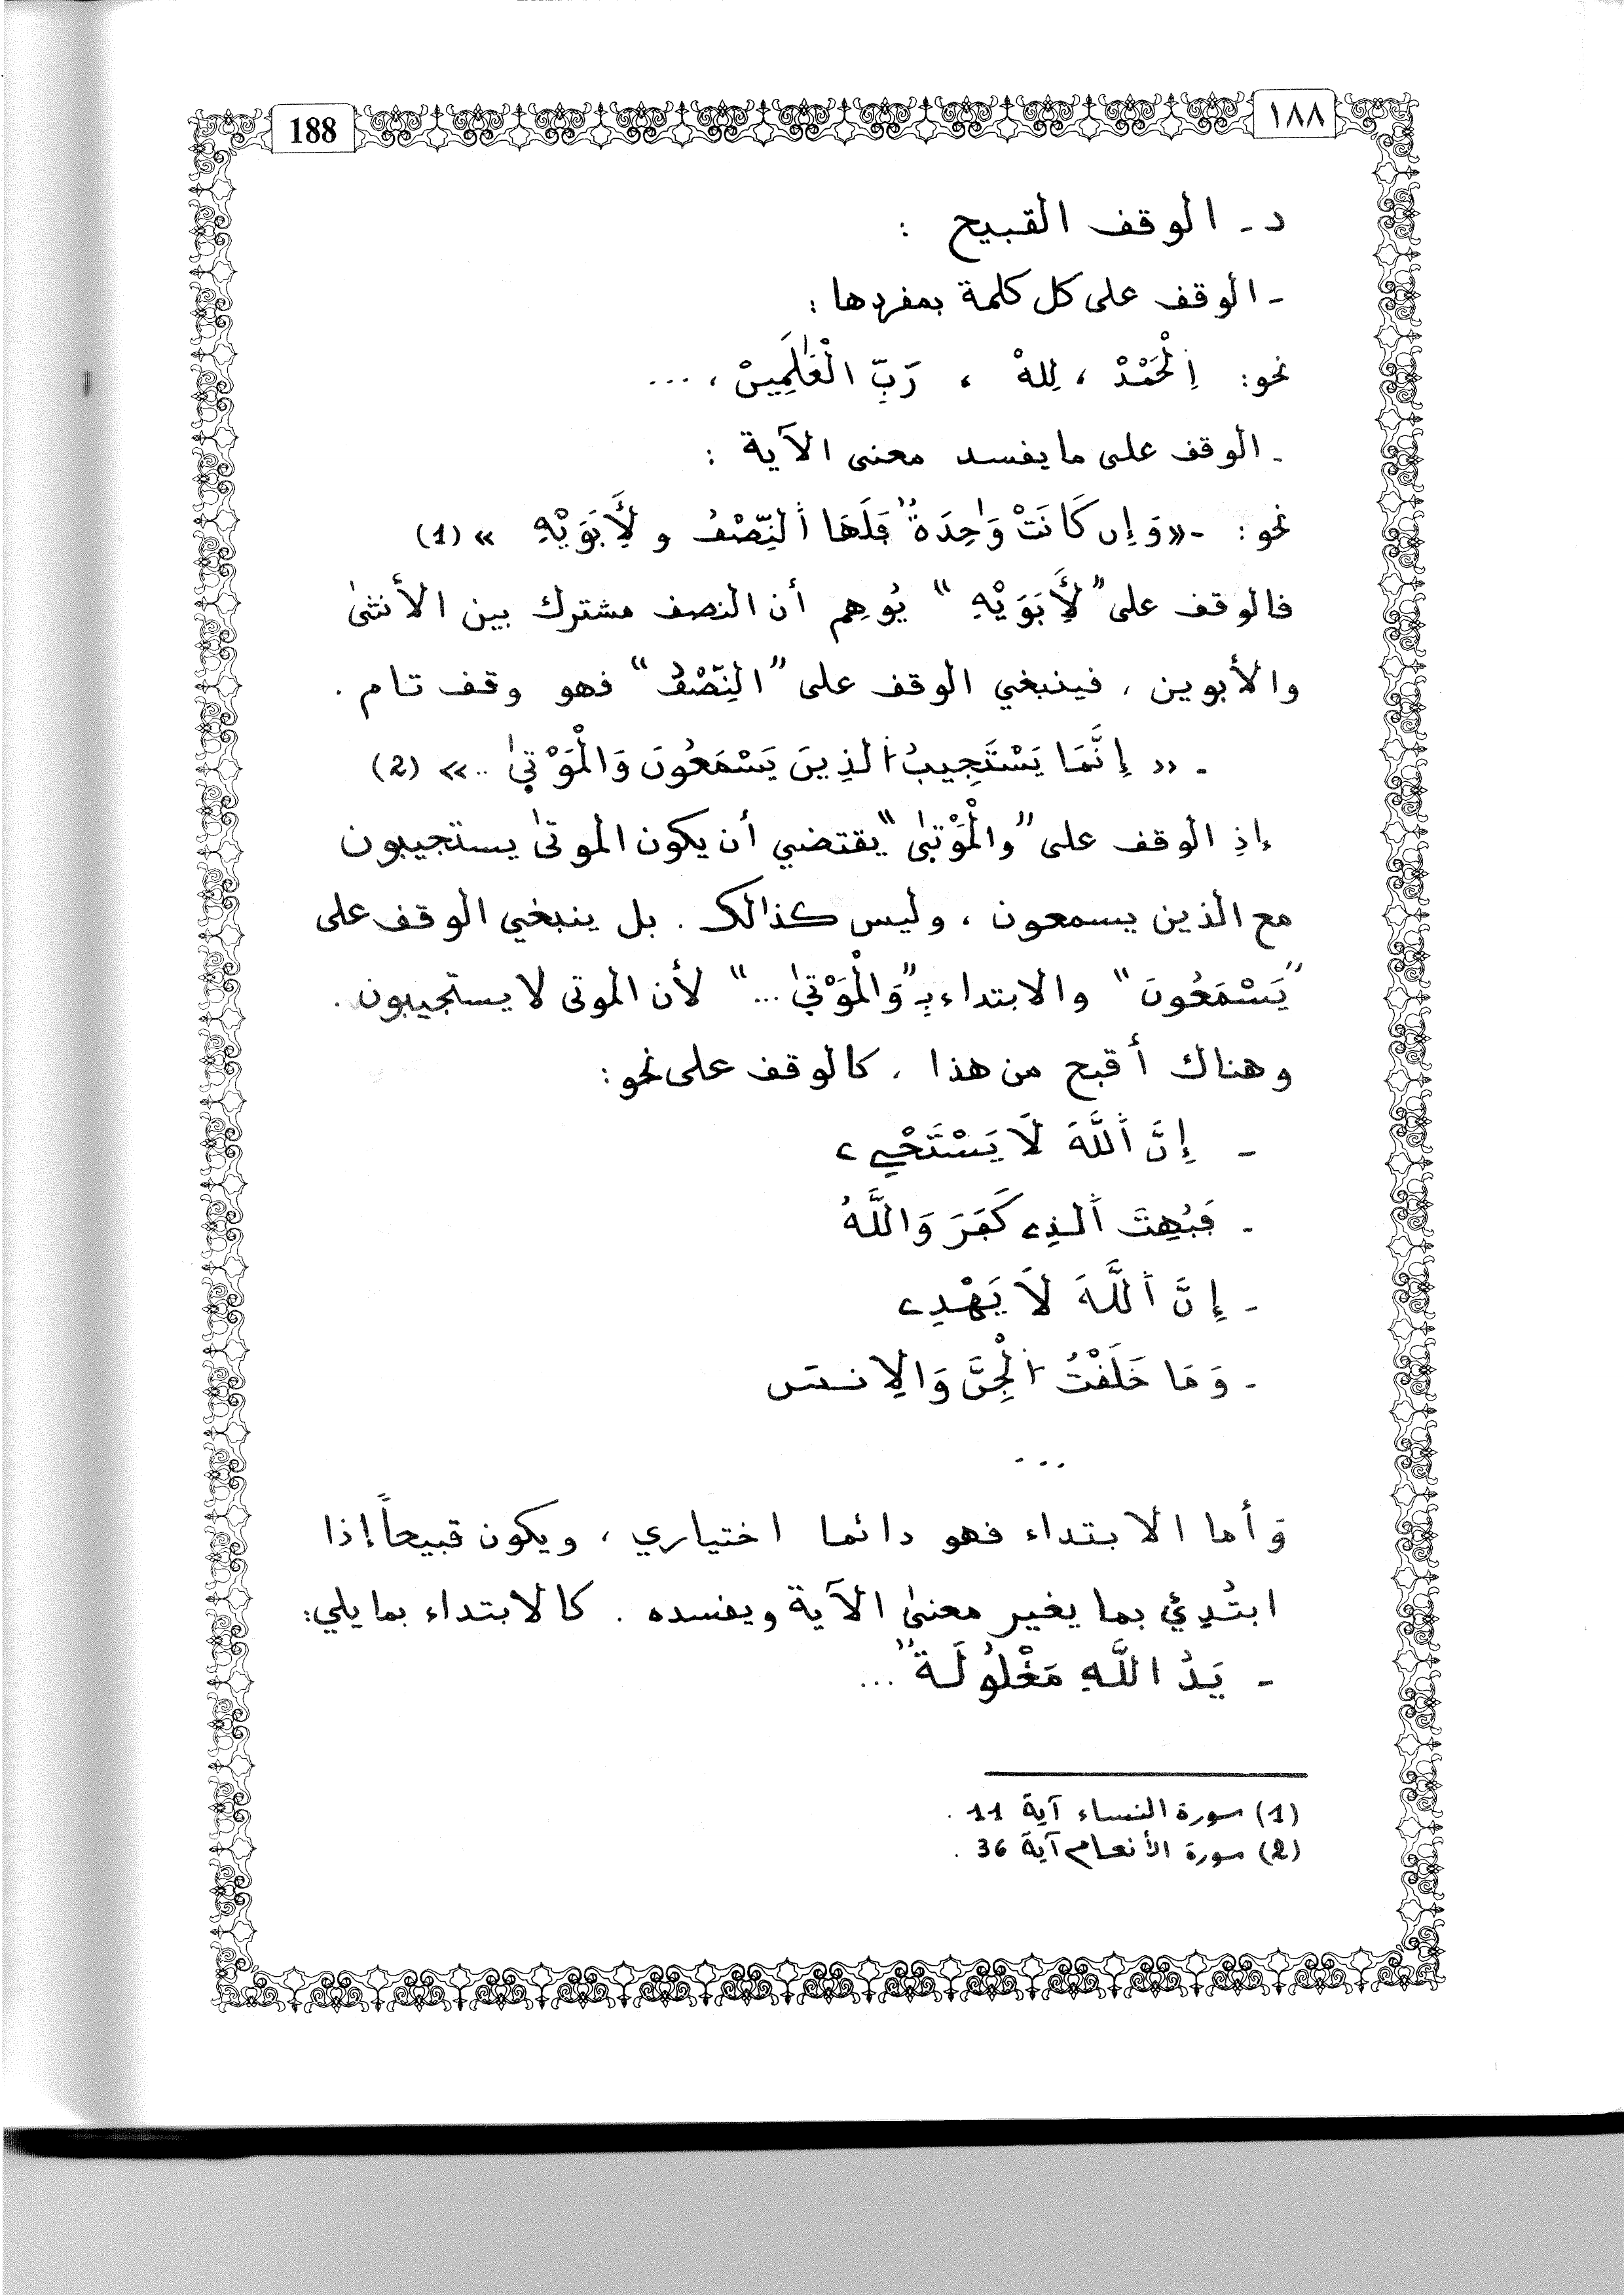 188
١٨٨
د - الوقف القبيح :
- الوقف على كل كلمة بمفردها :
نحو : اِلْحَمْدْ ، لِلهْ ، رَبِّ الْعَٰلَمِينْ ، ...
- الوقف على ما يفسد معنى الآية :
نحو : - « وَإِن كَانَتْ وَٰحِدَةٌ فَلَهَا اَ۬لنِّصْفُ وَلِأَبَوَيْهِ » (1)
فالوقف على " لِأَبَوَيْهِ " يُوهِم أن النصف مشترك بين الأنثىٰ
والأبوين ، فينبغي الوقف على " النِّصْفُ " فهو وقف تام .
- « إِنَّمَا يَسْتَجِيبُ اُ۬لذِينَ يَسْمَعُونَ وَالْمَوْتىٰ .. » (2)
إذِ الوقف على " والْمَوْتىٰ " يقتضي أن يكون الموتىٰ يستجيبون
مع الذين يسمعون ، وليس كذالك . بل ينبغي الوقف على
" يَسْمَعُونَ " والابتداء بِـ " وَالْمَوْتىٰ ... " لأن الموتى لا يستجيبون .
وهناك أقبح من هذا ، كالوقف على نحو :
- إِنَّ اَ۬للَّهَ لَا يَسْتَحْيِے
- فَبُهِتَ اَ۬لذِے كَفَرَ وَاللَّهُ
- إِنَّ اَ۬للَّهَ لَا يَهْدِے
- وَمَا خَلَقْتُ اُ۬لْجِنَّ وَالِانسَ
...
وَأما الابتداء فهو دائما اختياري ، ويكون قبيحاً إذا
ابتُدِئ بما يغير معنىٰ الآية ويفسده . كالابتداء بما يلي :
- يَدُ اللَّهِ مَغْلُولَةٌ ...
(1) سورة النساء آية 11 .
(2) سورة الأنعام آية 36 .